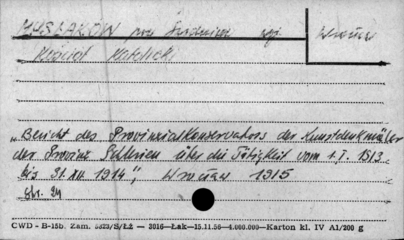 MYSŁAKÓW pow. Świdnica woj. Wrocław
Kościół Katolicki
„Bericht des Provinzialkonservators der Kunstdenkmäler
der Provinz Schlesien über die Tätigkeit vom 1.I. 1913
bis 31.XII 1914", Wrocław 1915
Str. 24
CWD - B-15b. Zam. 5823/S/ŁŻ — 3916—Łak—15.11.56—4.000.000—Karton kl. IV A1/200 g